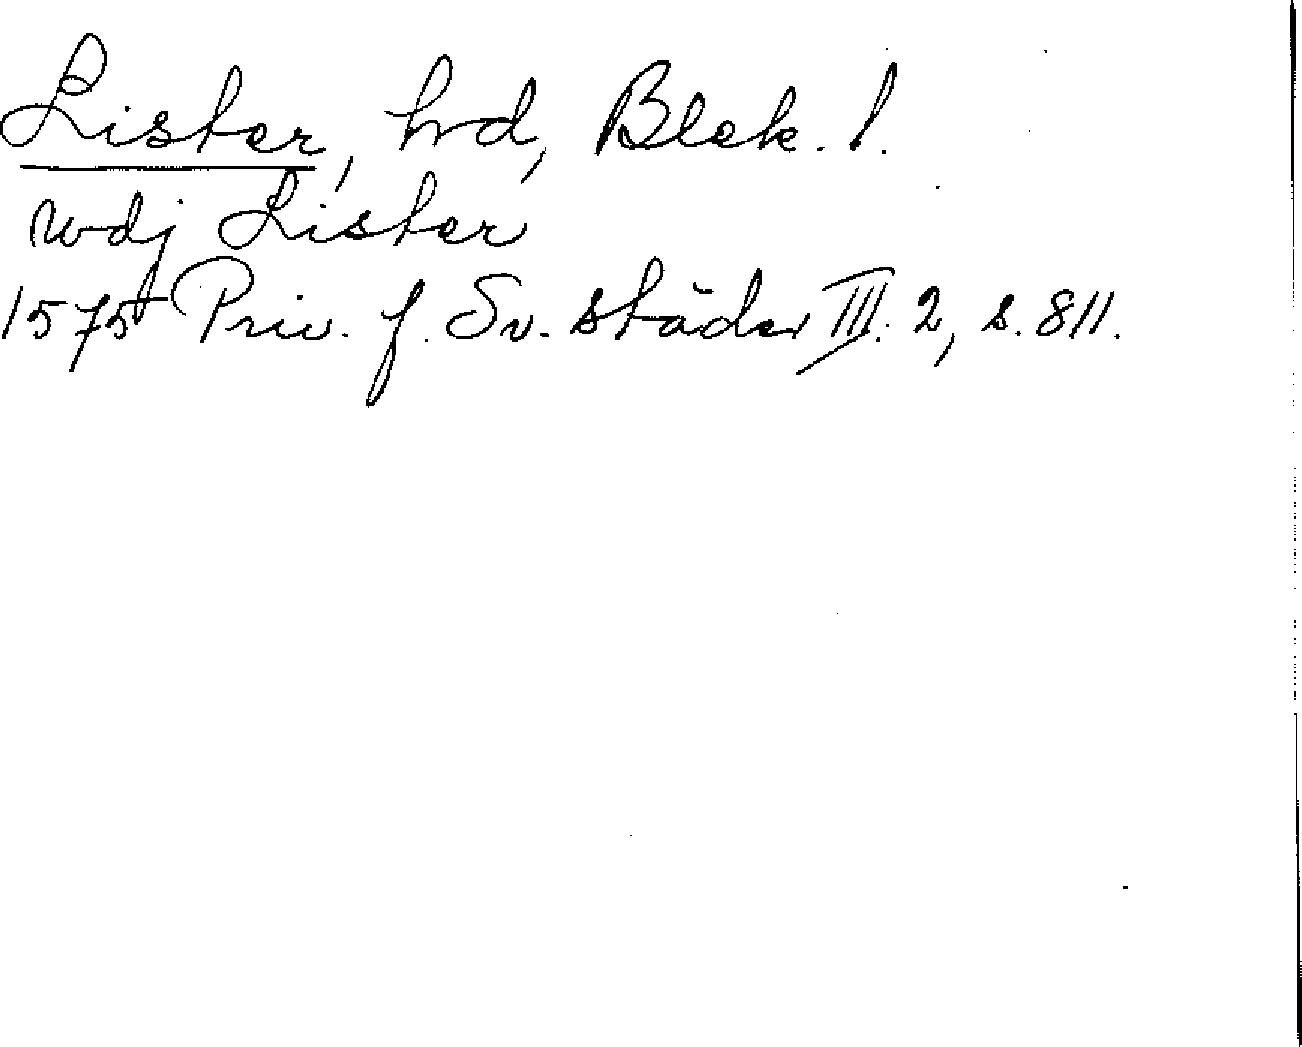 Lister, hrd, Blek. l.
wdj Lister
1575 Priv. f. Sv. städer III. 2, s. 811.